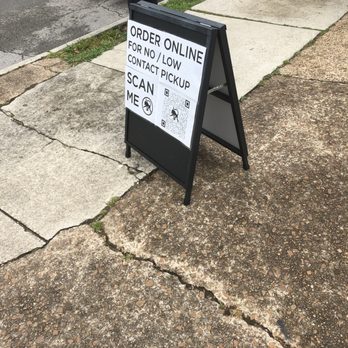 ORDER ONLINE
FOR NO / LOW
CONTACT PICKUP
SCAN
ME